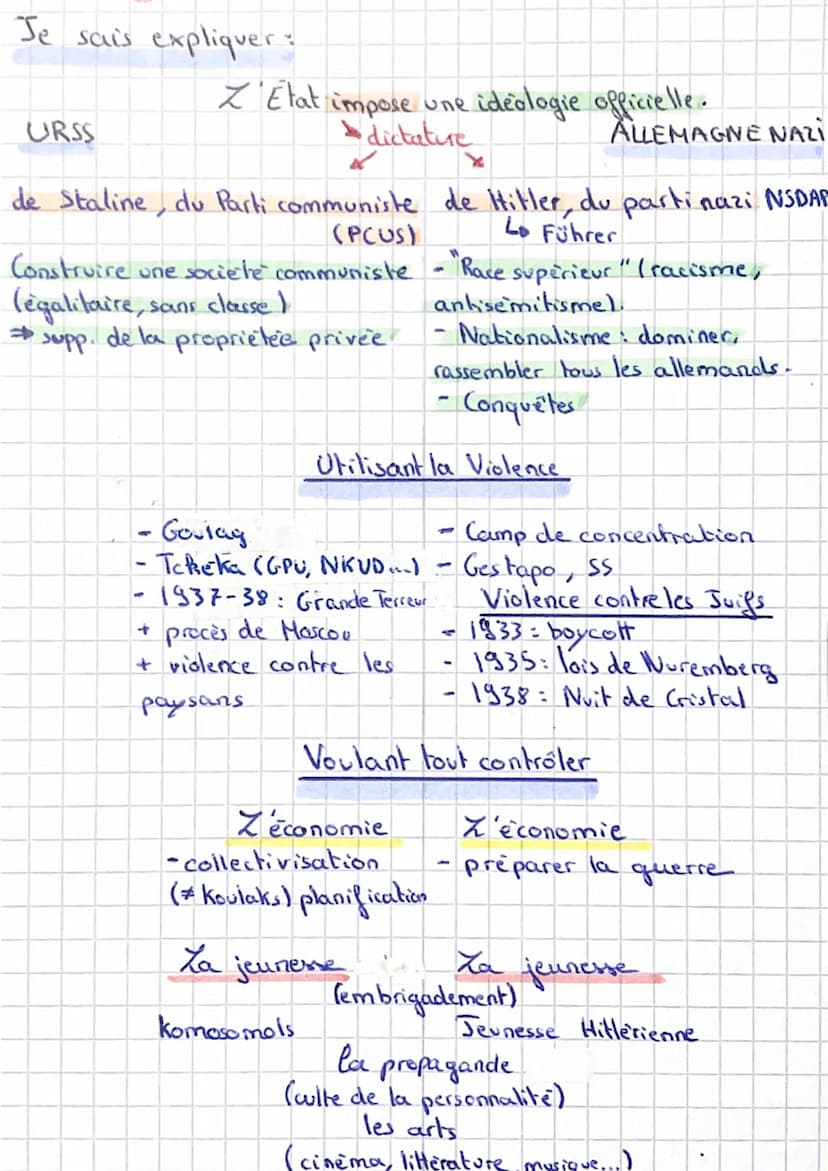 Je sais expliquer :
L'État impose une idéologie officielle.
URSS
dictature
ALLEMAGNE NAZI
de Staline, du Parti communiste
(PCUS)
Construire une société communiste
(égalitaire, sans classe)
⇒ supp. de la propriétée privée
de Hitler, du parti nazi NSDAP
↳ Führer
- "Race supérieur" (racisme,
antisémitisme).
- Nationalisme : dominer,
rassembler tous les allemands.
- Conquêtes
Utilisant la Violence
- Goulag
- Tchéka (GPU, NKVD...)
- 1937-38 : Grande Terreur
+ procès de Moscou
+ violence contre les
paysans
- Camp de concentration
- Gestapo, SS
Violence contre les Juifs
- 1933 : boycott
- 1935 : lois de Nuremberg
- 1938 : Nuit de Cristal
Voulant tout contrôler
L'économie
- collectivisation
(≠ Koulaks) planification
L'économie
- préparer la guerre
La jeunesse
La jeunesse
(embrigadement)
Komosomols
Jeunesse Hitlérienne
la propagande
(culte de la personnalité)
les arts
(cinéma, littérature, musique...)